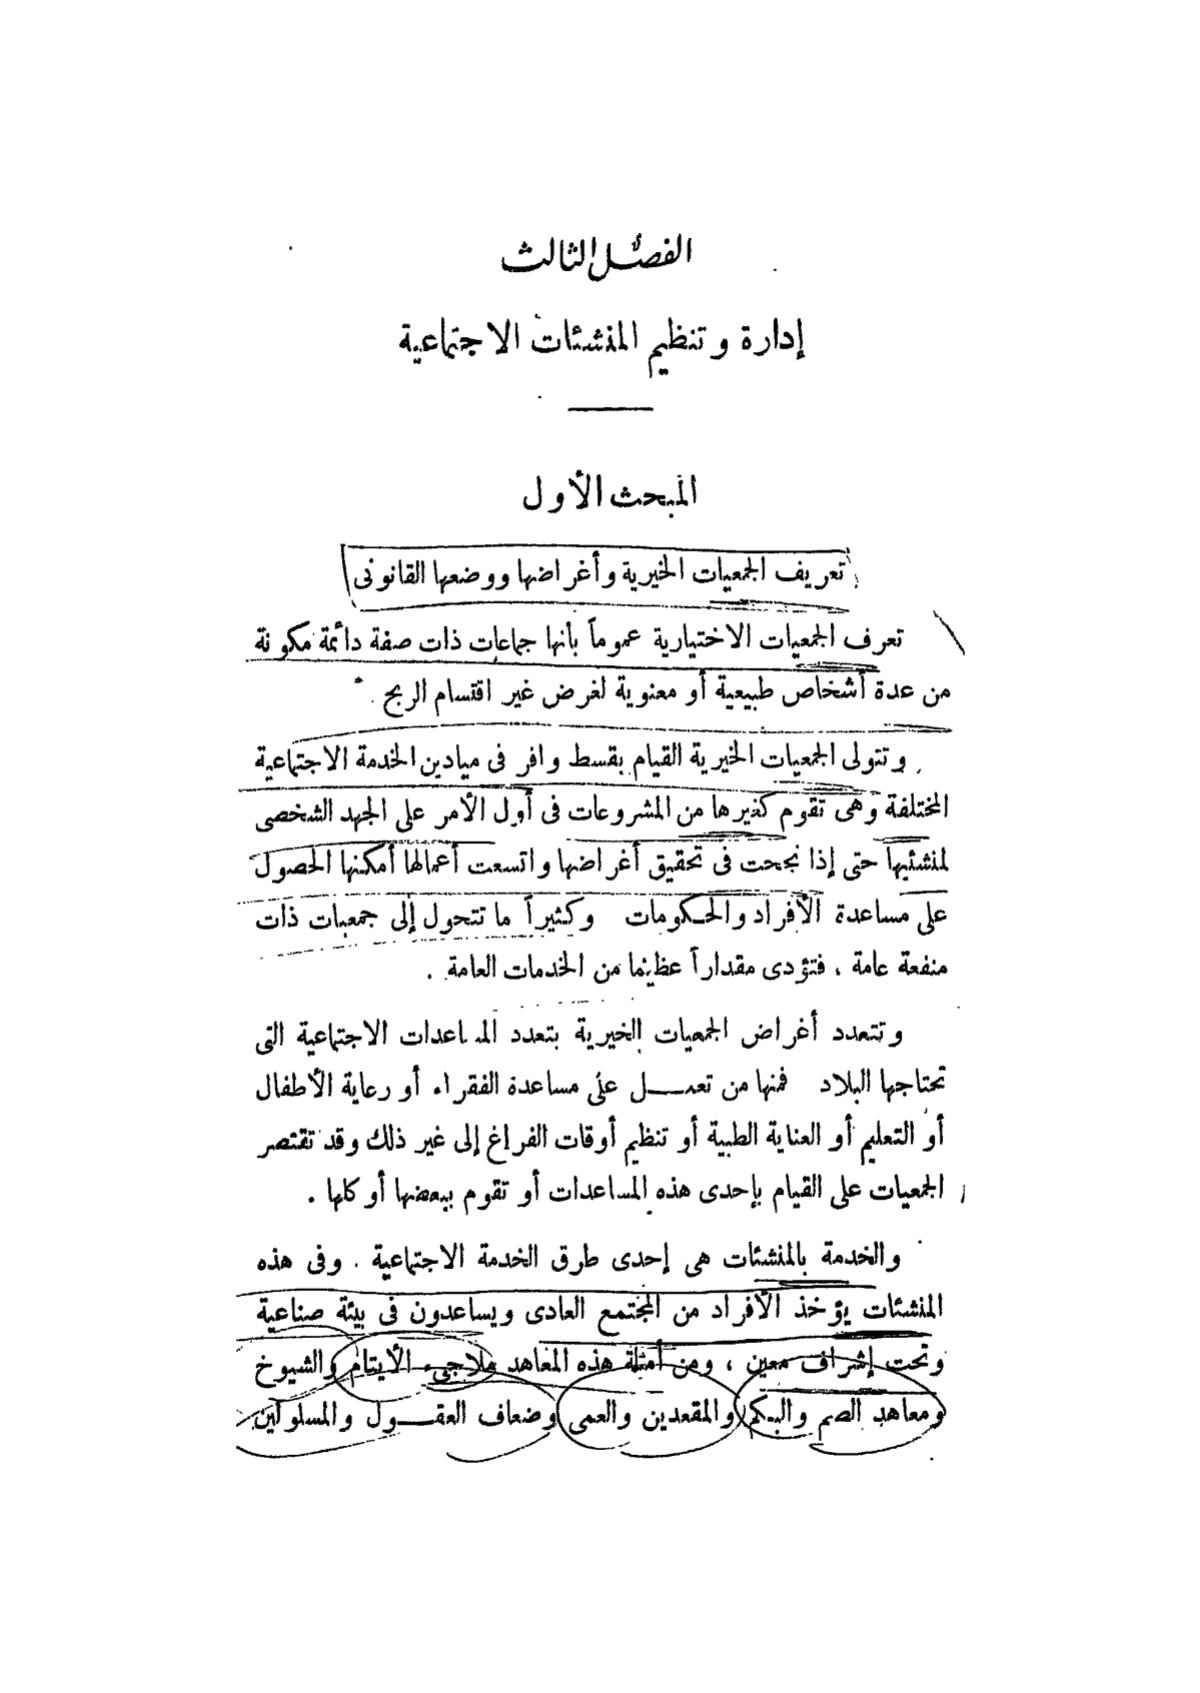 الفصل الثالث
إدارة وتنظيم المنشئات الاجتماعية
المبحث الأول
تعريف الجمعيات الخيرية وأغراضها ووضعها القانونى
تعرف الجمعيات الاختيارية عموماً بأنها جماعات ذات صفة دائمة مكونة
من عدة أشخاص طبيعية أو معنوية لغرض غير اقتسام الربح .
وتتولى الجمعيات الخيرية القيام بقسط وافر فى ميادين الخدمة الاجتماعية
المختلفة وهى تقوم كغيرها من المشروعات فى أول الأمر على الجهد الشخصى
لمنشئيها حتى إذا نجحت فى تحقيق أغراضها واتسعت أعمالها أمكنها الحصول
على مساعدة الأفراد والحكومات وكثيراً ما تتحول إلى جمعيات ذات
منفعة عامة ، فتؤدى مقداراً عظيما من الخدمات العامة .
وتتعدد أغراض الجمعيات الخيرية بتعدد المساعدات الاجتماعية التى
تحتاجها البلاد فمنها من تعمــل على مساعدة الفقراء أو رعاية الأطفال
أو التعليم أو العناية الطبية أو تنظيم أوقات الفراغ إلى غير ذلك وقد تقتصر
الجمعيات على القيام بإحدى هذه المساعدات أو تقوم ببعضها أو كلها .
والخدمة بالمنشئات هى إحدى طرق الخدمة الاجتماعية . وفى هذه
المنشئات يؤخذ الأفراد من المجتمع العادى ويساعدون فى بيئة صناعية
وتحت إشراف معين ، ومن أمثلة هذه المعاهد ملاجىء الأيتام والشيوخ
ومعاهد الصم والبكم والمقعدين والعمى وضعاف العقــول والمسلولين